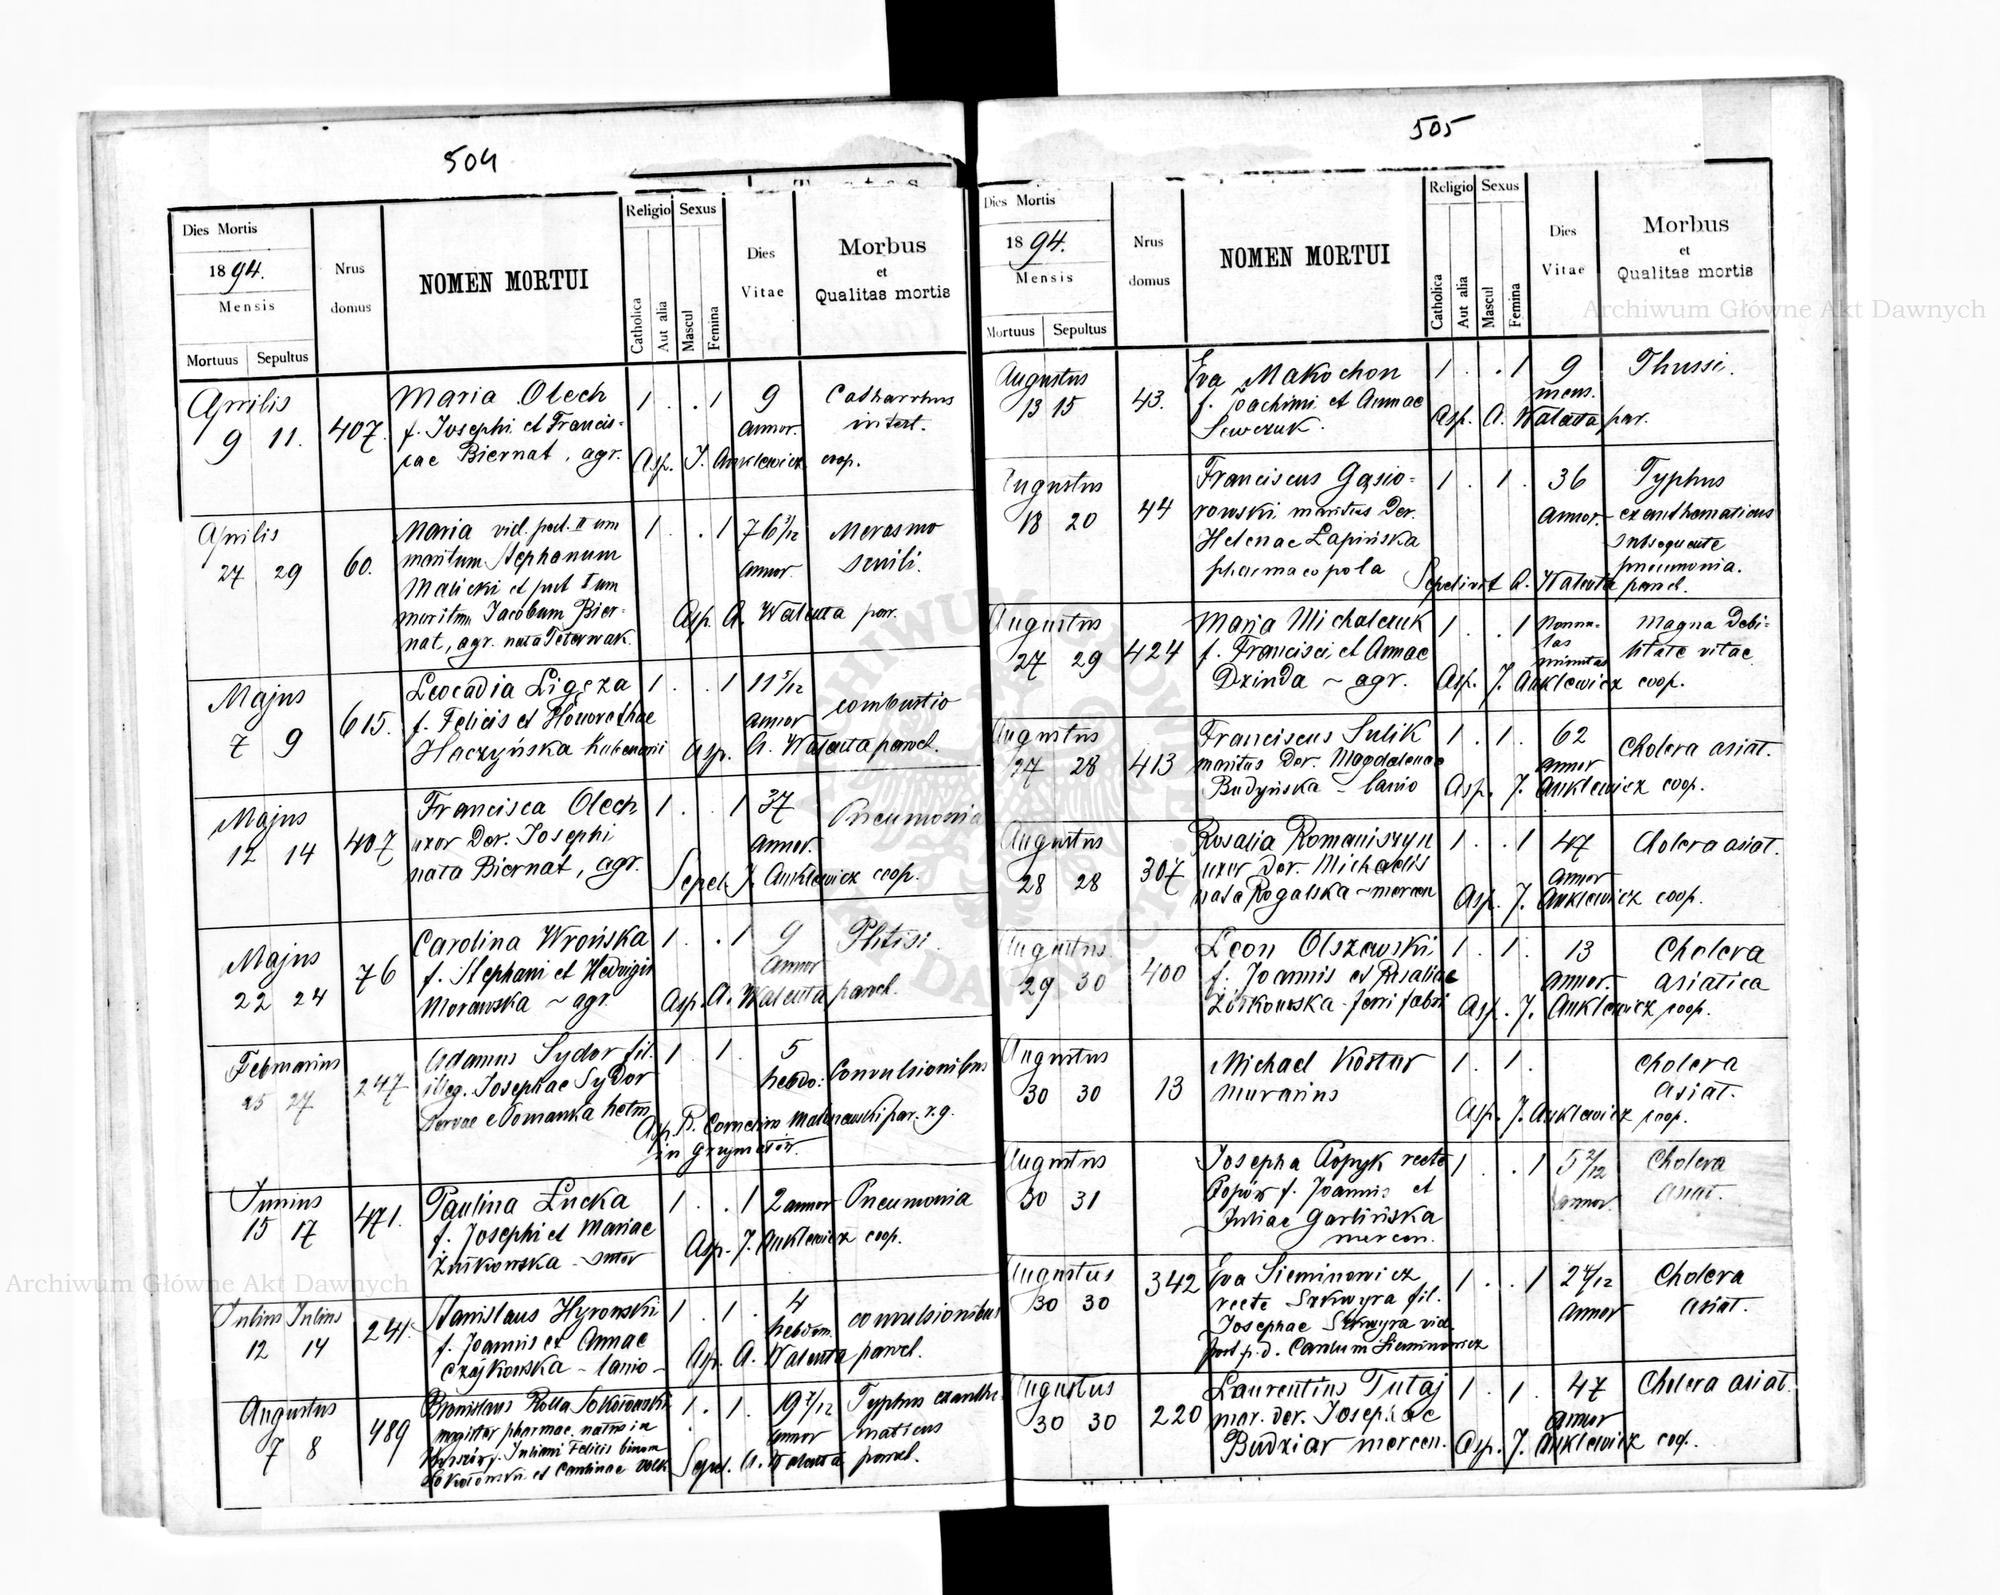 504
Dies Mortis
1894.
Mensis
Mortuus Sepultus
Nrus
domus
NOMEN MORTUI
Religio
Catholica
Aut alia
Sexus
Mascul
Femina
Dies
Vitae
Morbus
et
Qualitas mortis
Aprilis
9 11.
407.
Maria Olech
f. Josephi et Francis-
cae Biernat, agr.
1 . . 1
9
annor.
Catharrhus
intest.
Asp. J. Anklewicz coop.
Aprilis
27 29
60.
Maria vid. post. II um
maritum Stephanum
Malicki et post I um
maritum Jacobum Bier-
nat, agr. nata Peterwak.
1 . . 1
76 3/12
annor.
Marasmo
senili.
Asp. A. Walenta par.
Majus
7 9
615.
Leocadia Ligęza
f. Felicis et Honorathae
Haczyńska
1 . . 1
11 5/12
annor
combustio
Asp. A. Walenta paroch.
Majus
12 14
407
Francisca Olech
uxor Der. Josephi
nata Biernat, agr.
1 . . 1
37
annor.
Pneumonia
Sepel. J. Anklewicz coop.
Majus
22 24
76
Carolina Wrońska
f. Stephani et Hedvigis
Morawska ~ agr.
1 . . 1
9
annor
Phtisi.
Asp. A. Walenta paroch.
Februarius
25 27
247
Adamus Sydor fil.
illeg. Josephae Sydor
1 . 1 .
5
hebdo:
Convulsionibus
Asp. P. Cornelius Malinowski par. r.g.
in Grzymałów.
Junius
15 17
471.
Paulina Łucka
f. Josephi et Mariae
Żurkowska - sutor
1 . . 1
2 annor
Pneumonia
Asp. J. Anklewicz coop.
Julius Julius
12 14
241.
Stanislaus Hyronski
f. Joannis et Annae
Czajkowska - lanio -
1 . 1 .
4
hebdom.
convulsionibus
Asp. A. Walenta paroch.
Augustus
7 8
489
Bronislaus Rolla Sokołowski
magister pharmac. natus in
f. Juliani Felicis binom
Sokołowski et Carolinae
1 . 1 .
19 7/12
annor
Typhus exanthe
maticus
Sepel. A. Walenta paroch.
505
Dies Mortis
1894.
Mensis
Mortuus Sepultus
Nrus
domus
NOMEN MORTUI
Religio
Catholica
Aut alia
Sexus
Mascul
Femina
Dies
Vitae
Morbus
et
Qualitas mortis
Augustus
13 15
43.
Eva Makochon
f. Joachimi et Annae
Sewczuk.
1 . . 1
9
mens.
Thussi.
Asp. A. Walenta par.
Augustus
18 20
44
Franciscus Gąsio-
rowski maritus Der.
Helenae Łapińska
pharmacopola
1 . 1 .
36
annor.
Typhus
exanthematicus
subsequente
pneumonia.
Sepelivit A. Walenta paroch.
Augustus
27 29
424
Maria Michalczuk
f. Francisci et Annae
Dzinda ~ agr.
1 . . 1
Nonnu-
las
minutas
Magna Debi-
litate vitae
Asp. J. Anklewicz coop.
Augustus
27 28
413
Franciscus Sulik
maritus Der. Magdalenae
Budyńska - lanio
1 . 1 .
62
annor
Cholera asiat.
Asp. J. Anklewicz coop.
Augustus
28 28
307
Rosalia Romaniszyn
uxor Der. Michaelis
nata Rogalska ~ mercen
1 . . 1
47
annor
Cholera asiat.
Asp. J. Anklewicz coop.
Augustus
29 30
400
Leon Olszewski
f. Joannis et Rosaliae
Ziółkowska - ferri fabri
1 . 1 .
13
annor.
Cholera
asiatica
Asp. J. Anklewicz coop.
Augustus
30 30
13
Michael Kostur
murarius
1 . 1 .
Cholera
asiat.
Asp. J. Anklewicz coop.
Augustus
30 31
Josepha Popyk recte
Popów f. Joannis et
Juliae Garlińska
mercen.
1 . . 1
5 2/12
annor.
Cholera
asiat.
Augustus
30 30
342
Eva Sieminowicz
recte Szkwyra fil.
Josephae Szkwyra vid.
post p. d. Carolum Sieminowicz
1 . . 1
2 4/12
annor
Cholera
asiat.
Augustus
30 30
220
Laurentius Tutaj
mar. der. Josephae
Budziar mercen.
1 . 1 .
47
annor
Cholera asiat.
Asp. J. Anklewicz coop.
Archiwum Główne Akt Dawnych
Archiwum Główne Akt Dawnych
ARCHIWUM GŁÓWNE AKT DAWNYCH